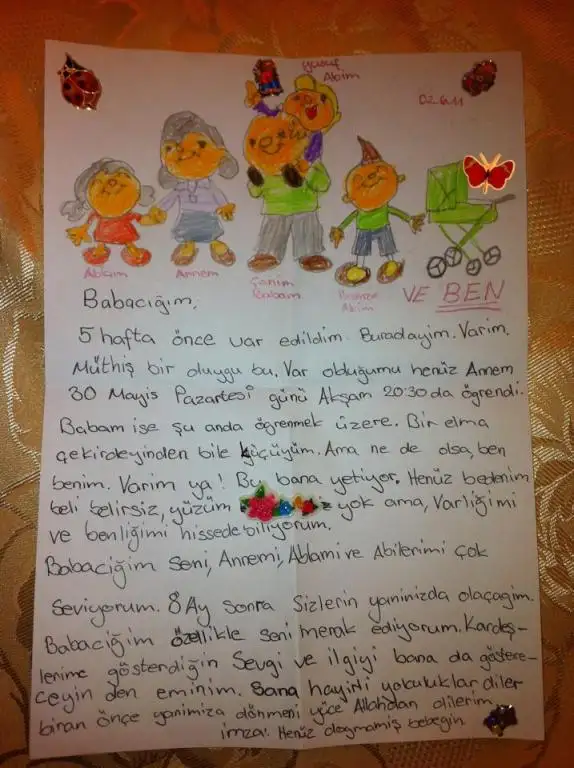 Yusuf
Abim
Ablam
Annem
Canim
Babam
Abim
VE BEN
Babacığım,
5 hafta önce var edildim. Buradayim. Varim.
Müthiş bir duygu bu. Var olduğumu henüz Annem
30 Mayis Pazartesi günü Akşam 20:30 da öğrendi.
Babam ise şu anda öğrenmek üzere. Bir elma
çekirdeyinden bile küçüyüm. Ama ne de olsa, ben
benim. Varim ya! Bu bana yetiyor. Henüz bedenim
beli belirsiz, yüzüm yok ama, Varliğimi
ve benliğimi hissedebiliyorum.
Babaciğim Seni, Annemi, Ablami ve Abilerimi çok
Seviyorum. 8 Ay sonra Sizlerin yaminizda olaçagim.
Babaciğim özellikle seni merak ediyorum. Kardeş-
lerime gösterdiğin Sevgi ve ilgiyi bana da göstere-
ceyin den eminim. Sana hayirli yolculuklar diler
biran önçe yanimiza dönmeni yüce Allahdan dilerim.
imza: Henüz dogmamiş bebegin